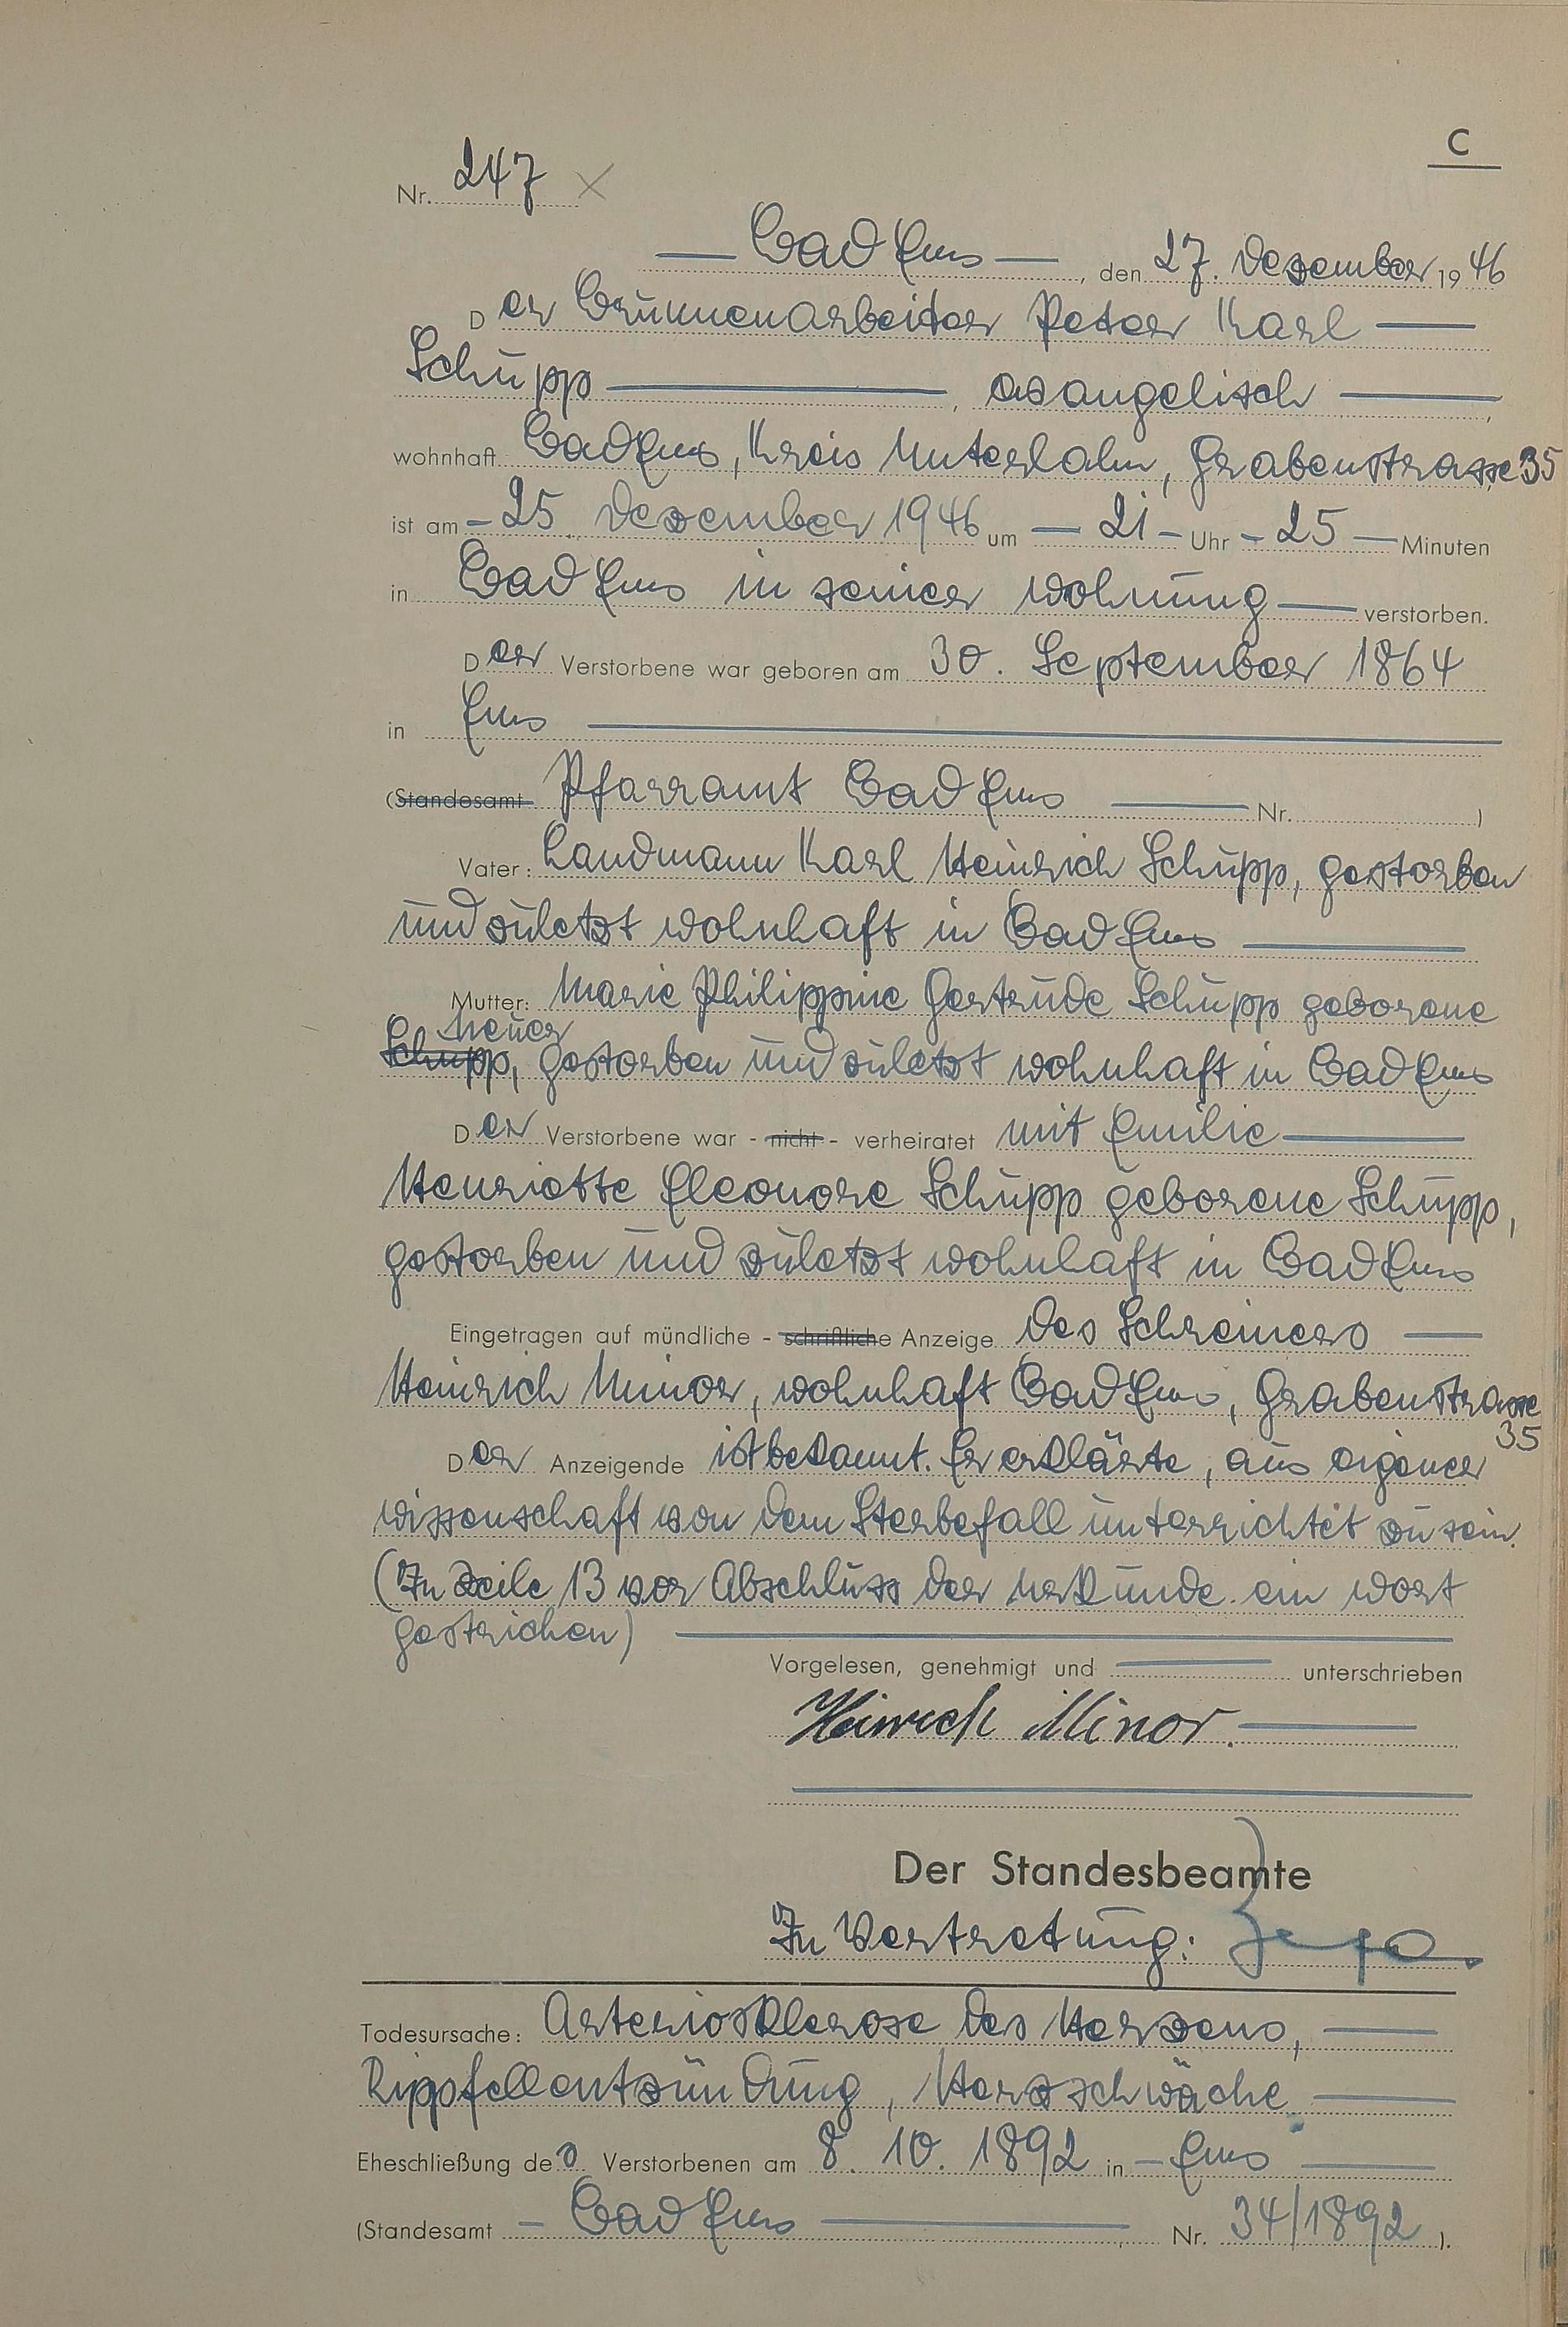 C
Nr. 247
— Bad Ems —, den 27. Dezember 1946
Der Brunnenarbeiter Peter Karl —
Schupp —, evangelisch —,
wohnhaft Bad Ems, Kreis Unterlahn, Grabenstrasse 35
ist am - 25. Dezember 1946 um — 21 - Uhr - 25 — Minuten
in Bad Ems in seiner Wohnung — verstorben.
Der Verstorbene war geboren am 30. September 1864
in Ems —
(Standesamt Pfarramt Bad Ems — Nr. )
Vater: Landmann Karl Heinrich Schupp, gestorben
und zuletzt wohnhaft in Bad Ems —
Mutter: Marie Philippine Gertrude Schupp geborene
Heuer
Schupp, gestorben und zuletzt wohnhaft in Bad Ems
Der Verstorbene war - nicht - verheiratet mit Emilie —
Henriette Eleonore Schupp geborene Schupp,
gestorben und zuletzt wohnhaft in Bad Ems
Eingetragen auf mündliche - schriftliche Anzeige des Schreiners —
Heinrich Minor, wohnhaft Bad Ems, Grabenstrasse
35
Der Anzeigende ist bekannt. Er erklärte, aus eigener
Wissenschaft von dem Sterbefall unterrichtet zu sein.
(In Zeile 13 vor Abschluss der Urkunde ein Wort
gestrichen) —
Vorgelesen, genehmigt und — unterschrieben
Heinrich Minor. —
Der Standesbeamte
In Vertretung:
Todesursache: Arteriosklerose des Herzens, —
Rippfellentzündung, Herzschwäche. —
Eheschließung des Verstorbenen am 8. 10. 1892 in - Ems —
(Standesamt - Bad Ems — Nr. 34/1892 ).